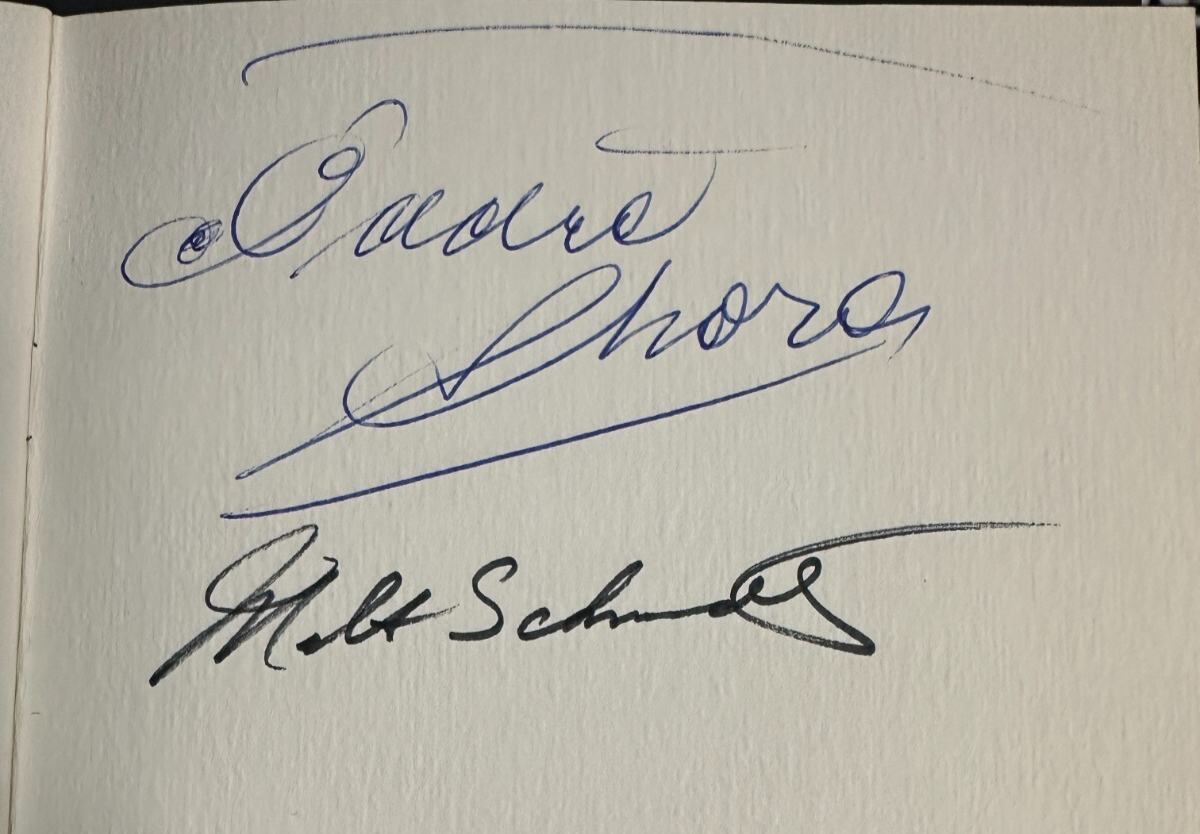 Eddie
Shore
Milt Schmidt